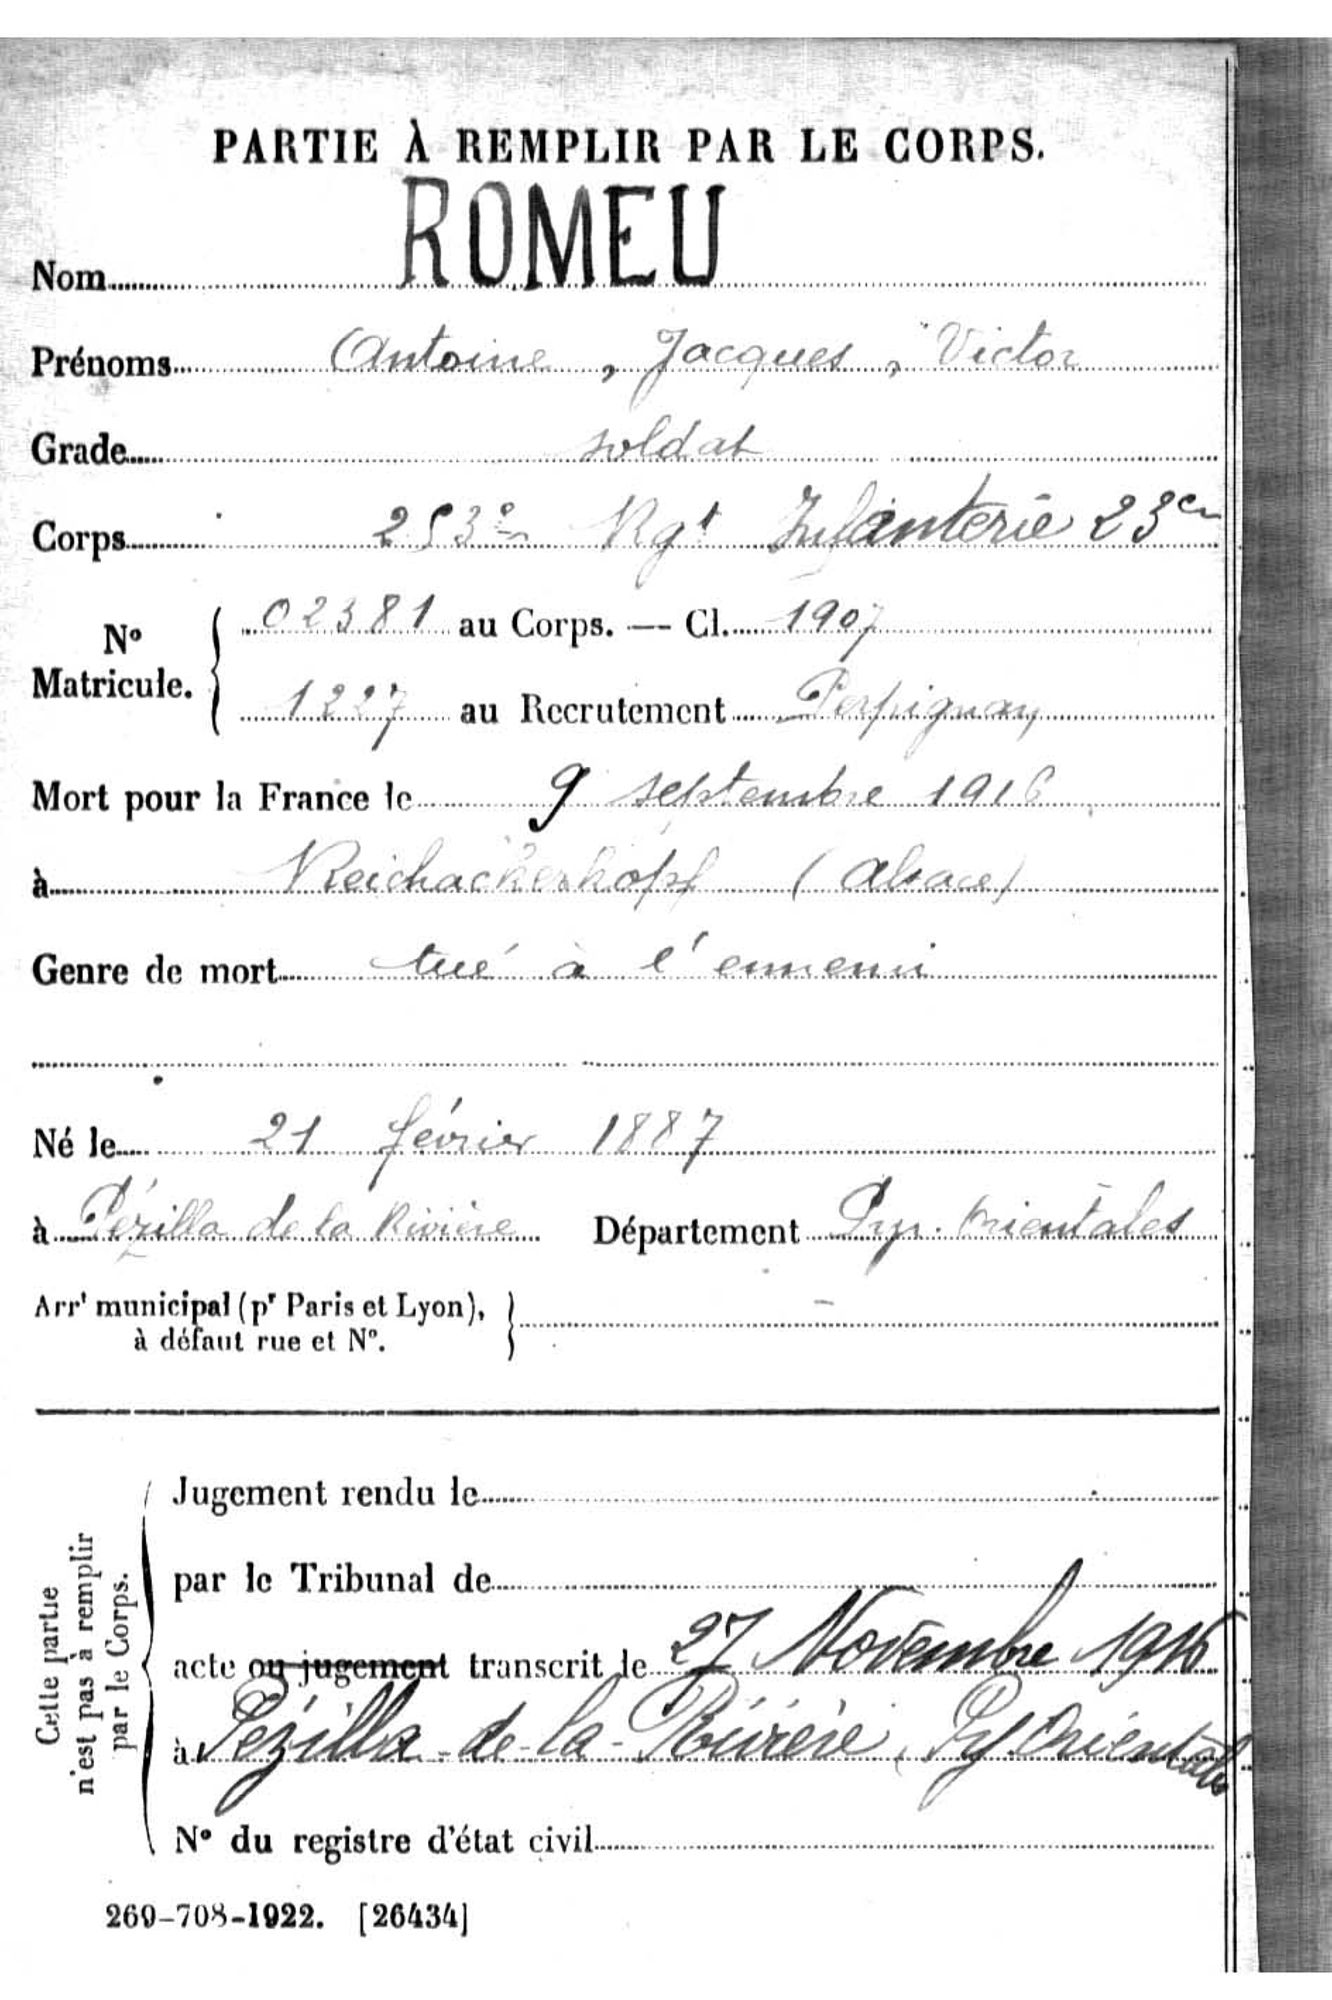 PARTIE À REMPLIR PAR LE CORPS.
Nom ROMEU
Prénoms Antoine, Jacques, Victor
Grade soldat
Corps 253e Rgt Infanterie 23e Cie
No Matricule. 02381 au Corps. — Cl. 1907
1227 au Recrutement Perpignan
Mort pour la France le 9 septembre 1916
à Reichackerkopf (Alsace)
Genre de mort tué à l'ennemi
Né le 21 février 1887
à Pézilla de la Rivière Département Pyr. Orientales
Arrt municipal (pr Paris et Lyon), -
à défaut rue et No.
Cette partie n'est pas à remplir par le Corps.
Jugement rendu le
par le Tribunal de
acte ou jugement transcrit le 27 Novembre 1916
à Pézilla-de-la-Rivière, Py Orientales
No du registre d'état civil
269-708-1922. [26434]